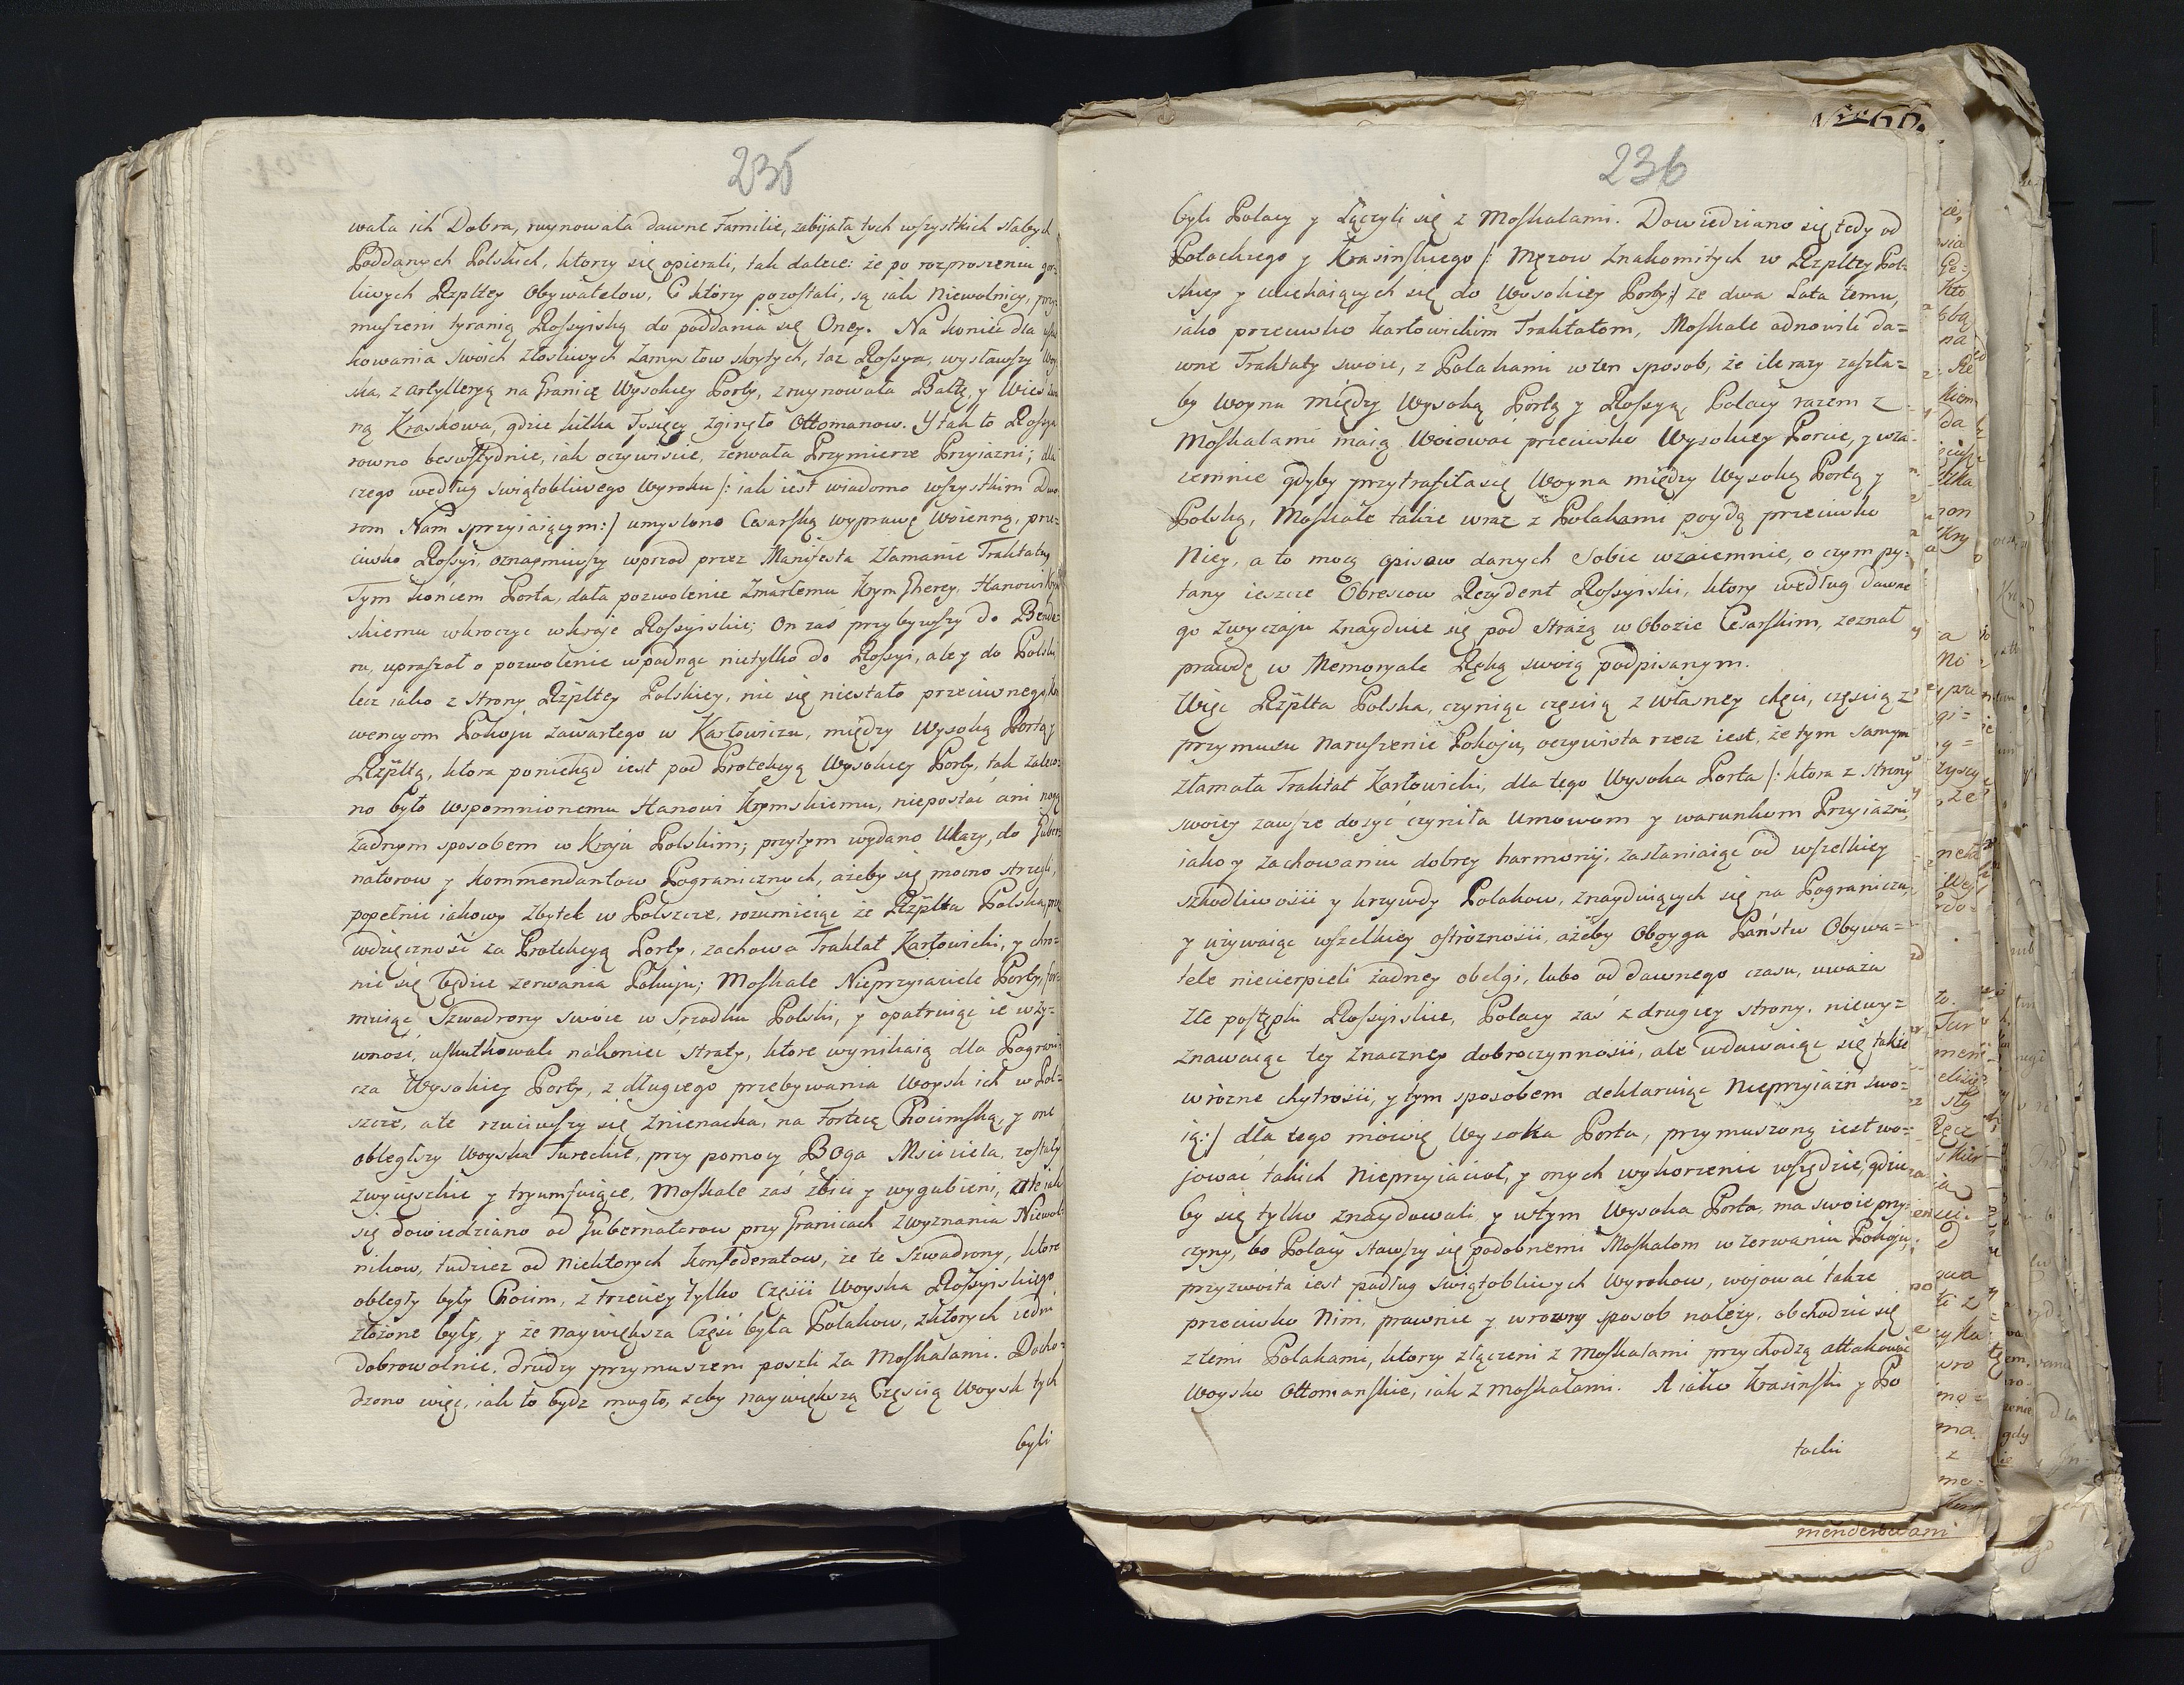 235
wała ich Dobra, ruynowała dawne Familie, zabijała tych wszystkich słabych
Poddanych Polskich, ktorzy się opierali, tak dalece: że po rozproszeniu gor-
liwych Rzpltey Obywatelow, Ci którzy pozostali, są iak Niewolnicy, przy
muszeni tyranią Rossyiską do poddania się Oney. Na koniec dla
kowania swoich złosliwych zamysłow skrytych, taż Rossya, wysławszy Woy
ska, z artylleryą na Granicę Wysokiey Porty, zruynowała Bałtę, y Wies
ną Kraskowa, gdzie kilka Tysięcy zginęło Ottomanow. Y tak to Rossya
rowno bezwstydnie, iak oczywiscie, zerwała Przymierze Przyiazni; dla
czego według swiątobliwego Wyroku /: iak iest wiadomo wszystkim Dwo
rom Nam sprzyiaiącym:/ umyslono Cesarską wyprawę Woienną, prze-
ciwko Rossyi, oznaymiwszy wprzod przez Manifesta złamanie Traktatu,
Tym koncem Porta, dała pozwolenie Zmarłemu Krym Gherey, Hanowi Krym
skiemu wkroczyc w kraje Rossyiskie; On zaś przybywszy do Bende-
ru, upraszał o pozwolenie wpadnąc nietylko do Rossyi, ale y do Polski
lecz iako z strony Rzpltey Polskiey, nic się niestało przeciwnego Kon
wencyom Pokoju zawartego w Karłowiczu, między Wysoką Portą y
Rzpltą, ktora poniekąd iest pod Protekcyą Wysokiey Porty, tak zaleco-
no było wspomnionemu Hanowi Krymskiemu, niepostać ani nogą
żadnym sposobem w Kraju Polskim; przytym wydano Ukazy, do Guber-
natorow y Kommendantow Pogranicznych, ażeby się mocno strzegli,
popełnic iakowy Zbytek w Polszcze, rozumieiąc że Rzplta Polska, przez
wdzięczność za Protekcyą Porty, zachowa Traktat Karłowicki, y chro-
nić się będzie zerwania Pokoju; Moskale Nieprzyiaciele Porty, for
muiąc Szwadrony swoie w Srzodku Polski, y opatruiąc ie w ży-
wność, uskutkowali nakoniec straty, ktore wynikaią dla Pograni
cza Wysokiey Porty, z długiego przebywania Woysk ich w Pol-
szcze, ale rzuciwszy się znienacka, na Fortecę Chocimską, y one
obległszy Woyska Tureckie, przy pomocy Boga Msciciela, zostały
zwycięzkie y tryumfuiące, Moskale zaś zbici y wygubieni, ale iak
się dowiedziano od Gubernatorow przy Granicach z wyznania Niewol-
nikow, tudzież od niektorych Konfederatow, że te Szwadrony, ktore
obległy były Chocim, z trzeciey tylko Części Woyska Rossyiskiego
złożone były, y że naywiększa Część była Polakow, z ktorych iedni
dobrowolnie, drudzy przymuszeni poszli za Moskalami. Docho-
dzono więc, iak to bydz mogło, żeby naywiększą Częscią Woysk tych
byli
236
byli Polacy y Łączyli się z Moskalami. Dowiedziano się tedy od
Potockiego y Krasinskiego /: Mężow Znakomitych w Rzpltey Pol-
skiey y uciekaiących się do Wysokiey Porty:/ że dwa Lata temu,
iako przeciwko karłowickim Traktatom, Moskale odnowili da-
wne Traktaty swoie, z Polakami w ten sposob, że ile razy zaszła-
by Woyna między Wysoką Portą y Rossyą, Polacy razem z
Moskalami maią Woiować przeciwko Wysokiey Porcie, y wza
iemnie gdyby przytrafiła się Woyna między Wysoką Portą y
Polską, Moskale także wraz z Polakami poydą przeciwko
Niey, a to mocą opisow danych Sobie wzaiemnie, o czym py-
tany ieszcze Obrescow Rezydent Rossyiski, ktory według dawne
go Zwyczaju znayduie się pod Strażą w Obozie Cesarskim, zeznał
prawdę w Memoryale Ręką swoią podpisanym.
Więc Rzplta Polska, czyniąc częscią z własney chęci, częscią z
przymusu naruszenie Pokoju, oczywista rzecz iest, że tym samym
złamała Traktat Karłowicki, dla tego Wysoka Porta /: ktora z strony
swoiey zawsze dosyć czyniła Umowom y warunkom Przyiazni,
iako y zachowaniu dobrey harmonij, zasłaniaiąc od wszelkiey
szkodliwości y krzywdy Polakow, znayduiących się na Pograniczu,
y używaiąc wszelkiey ostrożności, ażeby Oboyga Państw Obywa-
tele niecierpieli żadney obelgi, lubo od dawnego czasu, uważa
złe postępki Rossyiskie, Polacy zaś z drugiey strony, niewy-
znawaiąc tey znaczney dobroczynności, ale udawaiąc się także
w różne chytrości, y tym sposobem deklaruiąc Nieprzyiaźń swo-
ią:/ dla tego mówię Wysoka Porta, przymuszoną iest wo-
jować takich Nieprzyiacioł, y onych wykorzenie wszędzie, gdzie
by się tylko znaydowali y w tym Wysoka Porta, ma swoie przy
czyny, bo Polacy stawszy się podobnemi Moskalom w zerwaniu Pokoju,
przyzwoita iest podług swiątobliwych Wyrokow, wojować także
przeciwko Nim, prawnie y w rowny sposob należy, obchodzić się
z temi Polakami, ktorzy złączeni z Moskalami przychodzą attakować
Woysko Ottomanskie, iak z Moskalami. A iako Krasinski y Po
tocki